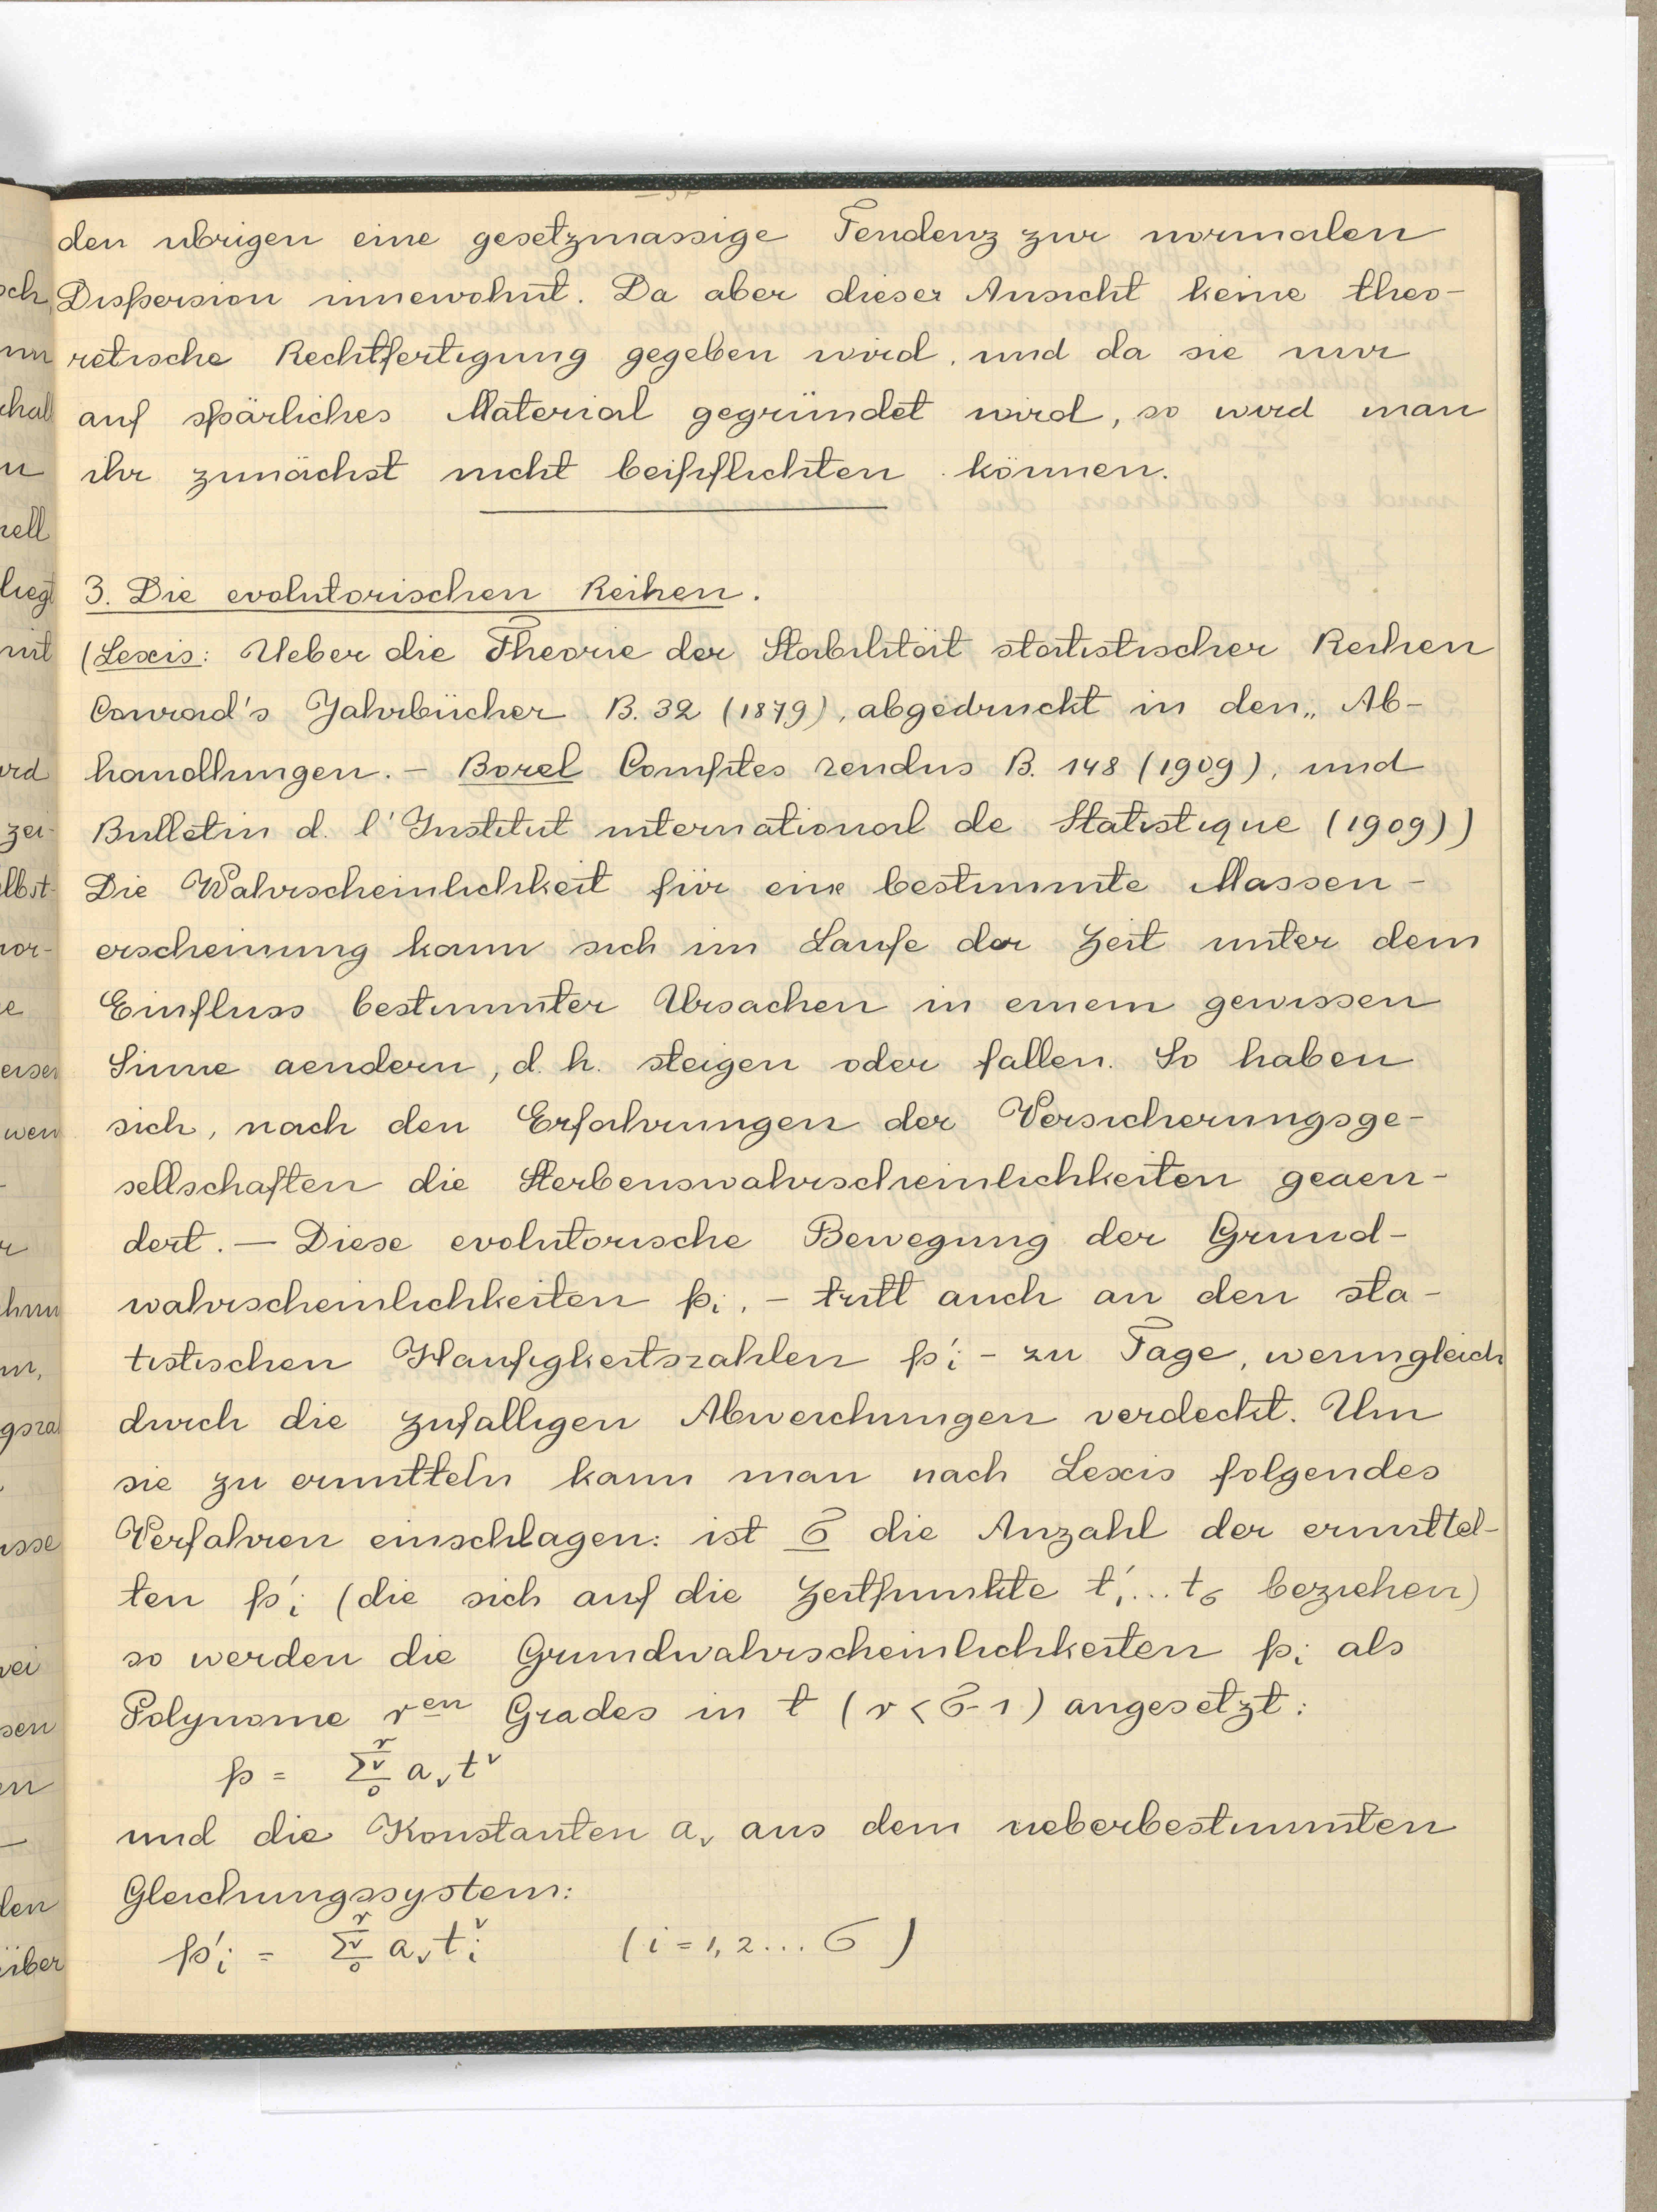 den ubrigen eine gesetzmassige Tendenz zur normalen
Dispersion innewohnt. Da aber dieser Ansicht keine theo-
retische Rechtfertigung gegeben wird, und da sie nur
auf spärliches Material gegründet wird, so wird man
ihr zunächst nicht beipflichten können.
3. Die evolutorischen Reihen.
(Lexis: Ueber die Theorie der Stabilität statistischer Reihen
Conrad's Jahrbücher B. 32 (1879), abgedruckt in den „Ab-
handlungen. – Borel Comptes rendus B. 148 (1909), und
Bulletin d. l'Institut international de Statistique (1909))
Die Wahrscheinlichkeit für eine bestimmte Massen-
erscheinung kann sich im Laufe der Zeit unter dem
Einfluss bestimmter Ursachen in einem gewissen
Sinne aendern, d. h. steigen oder fallen. So haben
sich, nach den Erfahrungen der Versicherungsge-
sellschaften die Sterbenswahrscheinlichkeiten geaen-
dert. – Diese evolutorische Bewegung der Grund-
wahrscheinlichkeiten pᵢ, – tritt auch an den sta-
tistischen Haufigkeitszahlen p'ᵢ – zu Tage, wenngleich
durch die zufalligen Abweichungen verdeckt. Um
sie zu ermitteln kann man nach Lexis folgendes
Verfahren einschlagen: ist σ die Anzahl der ermittel-
ten p'ᵢ (die sich auf die Zeitpunkte t'₁...t_σ beziehen)
so werden die Grundwahrscheinlichkeiten pᵢ als
Polynome r^en Grades in t (r < σ-1) angesetzt:
p = Σ_0^r ν a_ν t^ν
und die Konstanten a_ν aus dem ueberbestimmten
Gleichungssystem:
p'ᵢ = Σ_0^r ν a_ν tᵢ^ν (i = 1, 2 ... σ)